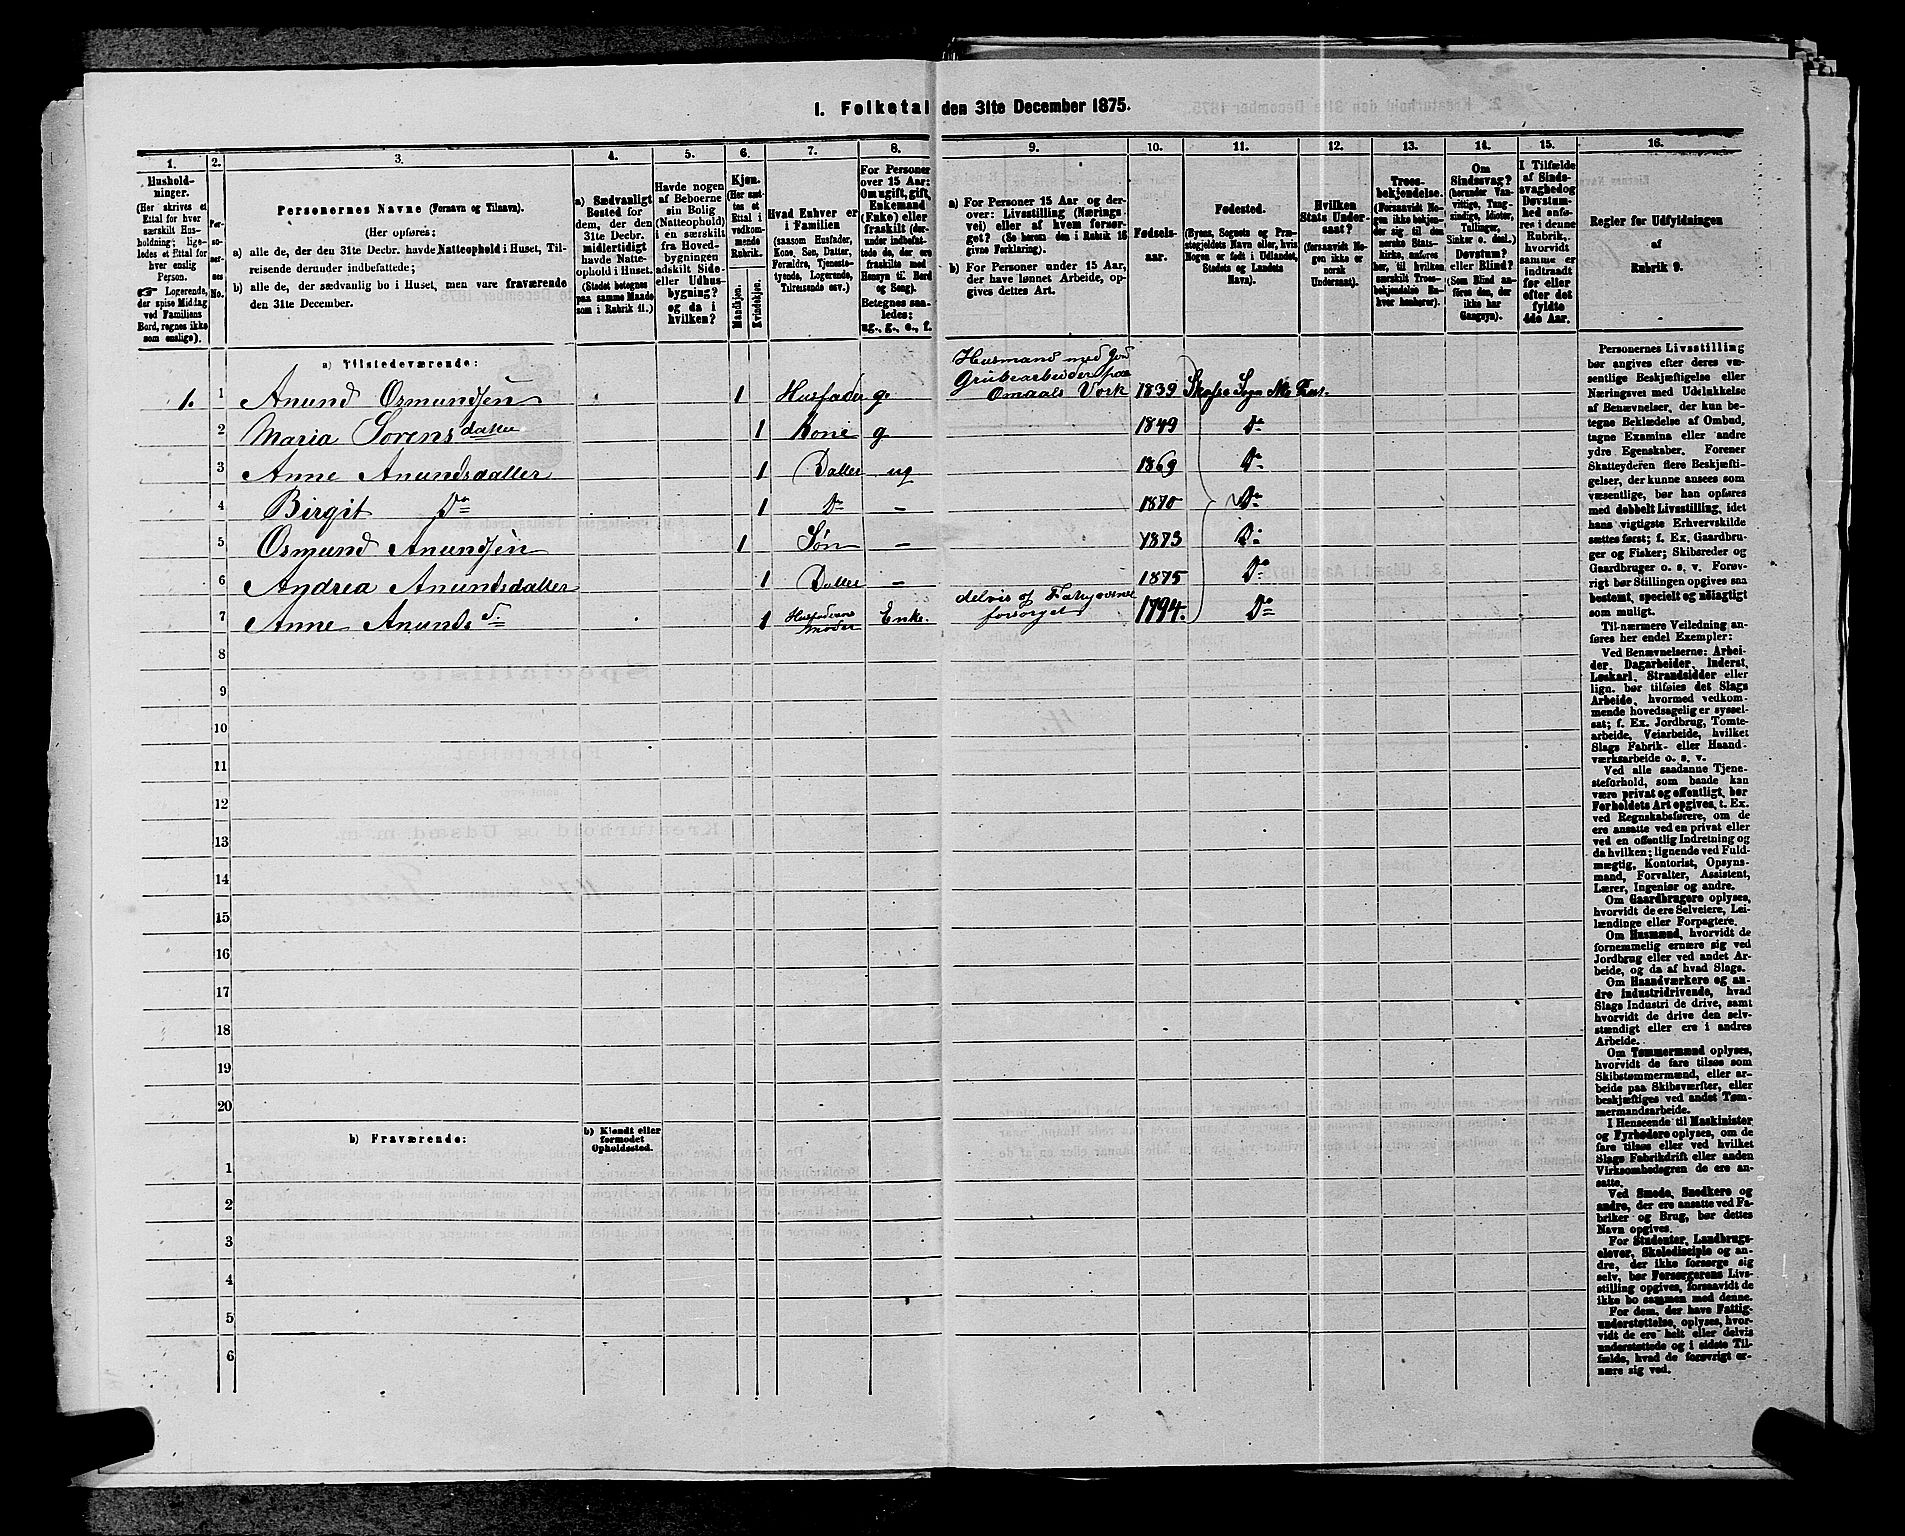 1. Folketal den 31te December 1875.
1. 2. 3. 4. 5. 6. 7. 8. 9. 10. 11. 12. 13. 14. 15. 16.
Husholdninger.
(Her skrives et Ettal for hver særskilt Husholdning; ligeledes et Ettal for hver enslig Person.
☞ Logerende, der spise Middag ved Familiens Bord, regnes ikke som enslige).
Personernes No.
Personernes Navne (Fornavn og Tilnavn).
(Her opføres:
a) alle de, der den 31te Decbr. havde Natteophold i Huset, Tilreisende derunder indbefattede;
b) alle de, der sædvanlig bo i Huset, men vare fraværende den 31te December.
a) Sædvanligt Bosted for dem, der den 31te Decbr. midlertidigt havde Natteophold i Huset.
(Stedet betegnes paa samme Maade som i Rubrik 11.)
Havde nogen af Beboerne sin Bolig (Natteophold) i en særskilt fra Hovedbygningen adskilt Side- eller Udhusbygning? og da i hvilken?
Kjøn.
(Her sættes et Ettal i vedkommende Rubrik.
Mandkjøn.
Kvindekjøn.
Hvad Enhver er i Familien
(saasom Husfader, Kone, Søn, Datter, Forældre, Tjenestetyende, Logerende, Tilreisende osv.)
For Personer over 15 Aar: Om ugift, gift, Enkemand (Enke) eller fraskilt (derunder indbefattede de, der ere fraskilte med Hensyn til Bord og Seng).
Betegnes saaledes: ug., g., e., f.
a) For Personer 15 Aar og derover: Livsstilling (Næringsvei) eller af hvem forsørget? (Se herom den i Rubrik 16 givne Forklaring).
b) For Personer under 15 Aar, der have lønnet Arbeide, opgives dettes Art.
Fødselsaar.
Fødested.
(Byens, Sognets og Præstegjeldets Navn eller, hvis Nogen er født i Udlandet, Stedets og Landets Navn).
Hvilken Stats Undersaat?
(forsaavidt Nogen ikke er norsk Undersaat).
Troesbekjendelse.
(Forsaavidt Nogen ikke bekjender sig til den norske Statskirke, anføres her, til hvilken særskilt Troesbekjendelse Enhver henhører).
Om Sindssvag? (herunder Vanvittige, Tungsindige, Idioter, Tullinger, Sinker o. desl.) Døvstum? eller Blind? (Som Blind anføres den, der ikke har Gangsyn).
I Tilfælde af Sindssvaghed og Døvstumhed anføres i denne Rubrik, hvorvidt samme er indtraadt før eller efter det fyldte 4de Aar.
Regler for Udfyldningen af Rubrik 9.
a) Tilstedeværende:
1. 1 Anund Osmundsen 1 Husfader g. Husmand med Jord Grubearbeider paa Omdals Værk 1839
2 Maria Sørensdatter 1 Kone g 1849 Do
3 Anne Anundsdatter 1 Datter ug 1869 Do
4 Birgit Do 1 Do – 1870 Do
5 Osmund Anundsen 1 Søn – 1873 Do
6 Andrea Anundsdatter 1 Datter – 1875 Do
7 Anne Anundsd. 1 Husfaderens Moder Enke. delvis af Fattigvæsnet forsørget 1794. Do
8
9
10
11
12
13
14
15
16
17
18
19
20
b) Fraværende:
b) Kjendt eller formodet Opholdssted.
1
2
3
4
5
6
Personernes Livsstilling bør angives efter deres væsentlige Beskjæftigelse eller Næringsvei med Udelukkelse af Benævnelser, der kun betegne Beklædelse af Ombud, tagne Examina eller andre ydre Egenskaber. Forener Skatteyderen flere Beskjæftigelser, der kunne ansees som væsentlige, bør han opføres med dobbelt Livsstilling, idet hans vigtigste Erhvervskilde sættes først; f. Ex. Gaardbruger og Fisker; Skibsreder og Gaardbruger o. s. v. Forøvrigt bør Stillingen opgives saa bestemt, specielt og nøiagtigt som muligt.
Til nærmere Veiledning anføres her endel Exempler:
Ved Benævnelserne: Arbeider, Dagarbeider, Inderst, Løskarl, Strandsidder eller lign. bør tilføies det Slags Arbeide, hvormed vedkommende hovedsagelig er sysselsat; f. Ex. Jordbrug, Tomtearbeide, Veiarbeide, hvilket Slags Fabrik- eller Haandværksarbeide o. s. v.
Ved alle saadanne Tjenesteforhold, som baade kan være privat og offentligt, bør Forholdets Art opgives, t. Ex. ved Regnskabsførere, om de ere ansatte ved en privat eller ved en offentlig Indretning og da hvilken; lignende ved Fuldmægtig, Kontorist, Opsynsmand, Forvalter, Assistent, Lærer, Ingeniør og andre.
Om Gaardbrugere oplyses, hvorvidt de ere Selveiere, Leilændinge eller Forpagtere.
Om Husmænd, hvorvidt de fornemmelig ernære sig ved Jordbrug eller ved andet Arbeide, og da af hvad Slags.
Om Haandværkere og andre Industridrivende, hvad Slags Industri de drive, samt hvorvidt de drive den selvstændigt eller ere i andres Arbeide.
Om Tømmermænd oplyses, hvorvidt de fare tilsøs som Skibstømmermænd, eller arbeide paa Skibsværfter, eller beskjæftiges ved andet Tømmermandsarbeide.
I Henseende til Maskinister og Fyrbødere oplyses, om de fare tilsøs eller ved hvilket Slags Fabrikdrift eller anden Virksomhedsgren de ere ansatte.
Ved Smede, Snedkere og andre, der ere ansatte ved Fabriker og Brug, bør dettes Navn opgives.
For Studenter, Landbrugselever, Skoledisciple og andre, der ikke forsørge sig selv, bør Forsørgerens Livsstilling opgives, forsaavidt de ikke bo sammen med denne.
For dem, der have Fattigunderstøttelse, oplyses, hvorvidt de ere helt eller delvis understøttede og i sidste Tilfælde, hvad de forøvrigt ernære sig ved.